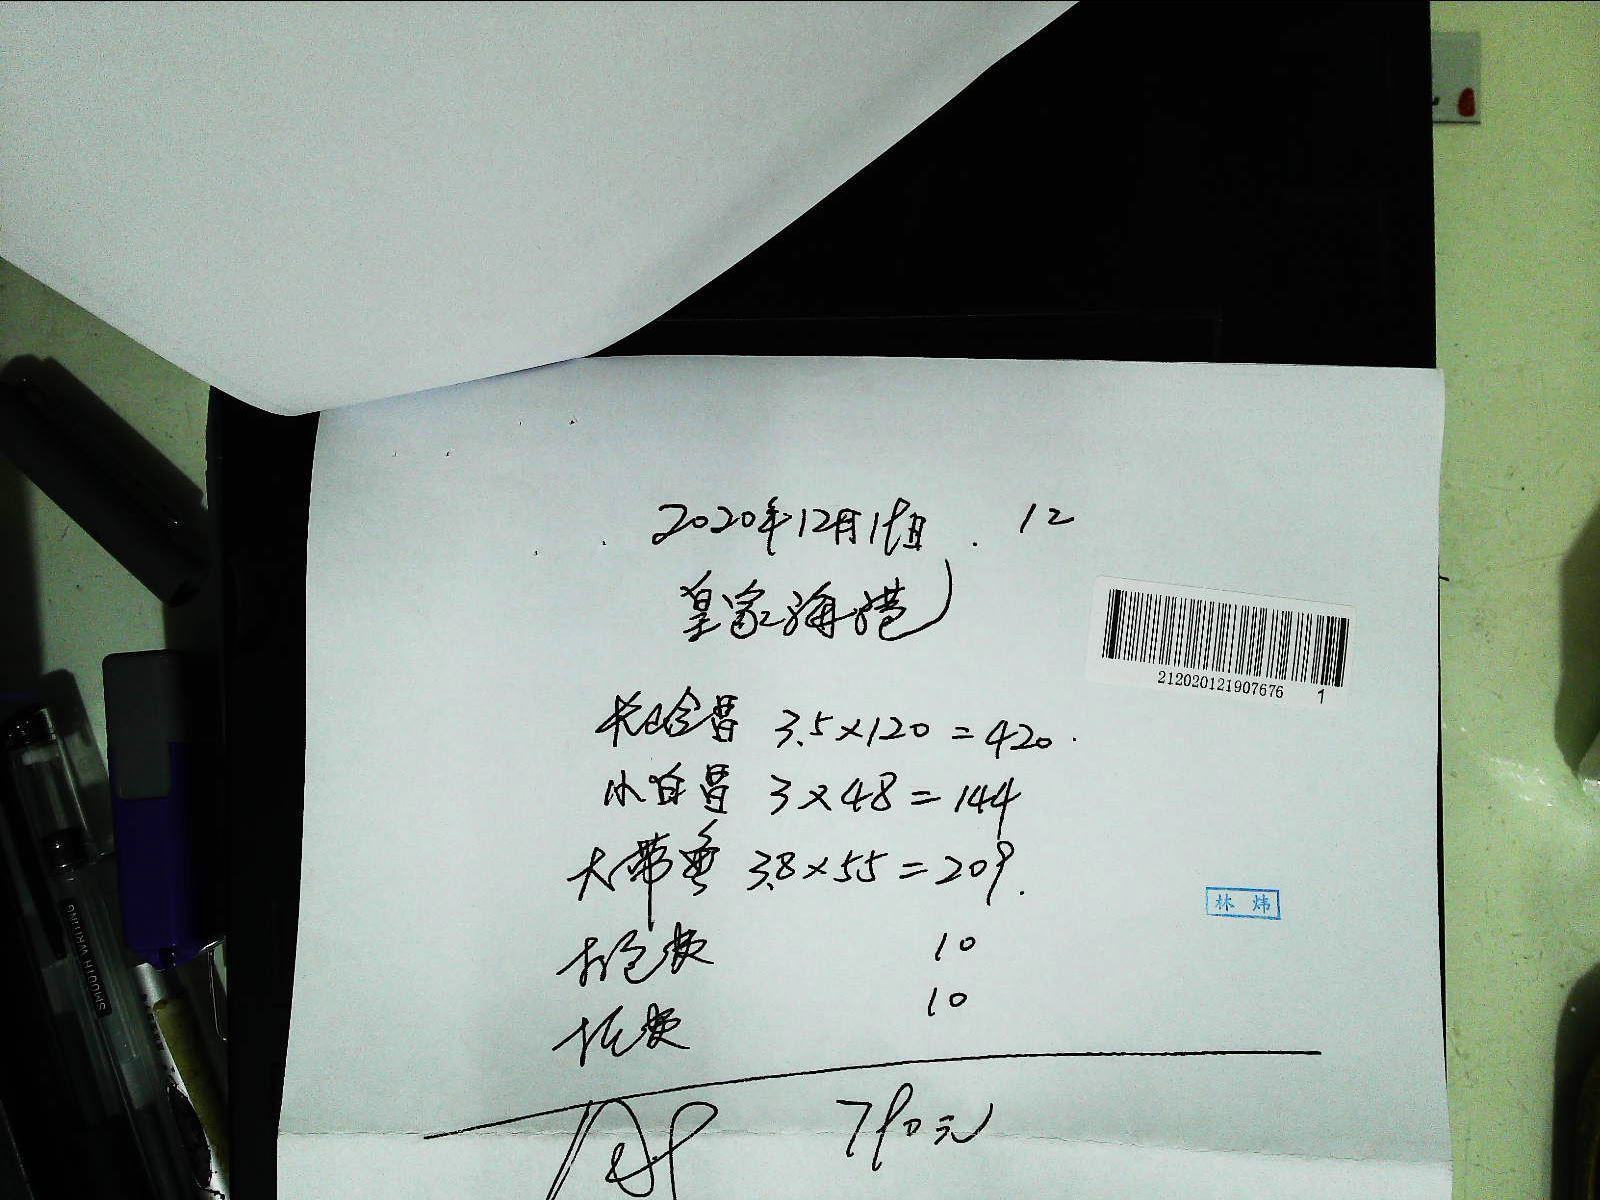 2020年12月19日 . 12
皇家海港
212020121907676 1
3.5×120=420.
小白昌 3×48=144
大带鱼 3.8×55=209.
林炜
打包费 10
托费 10
790元
SMOOTH WRITING